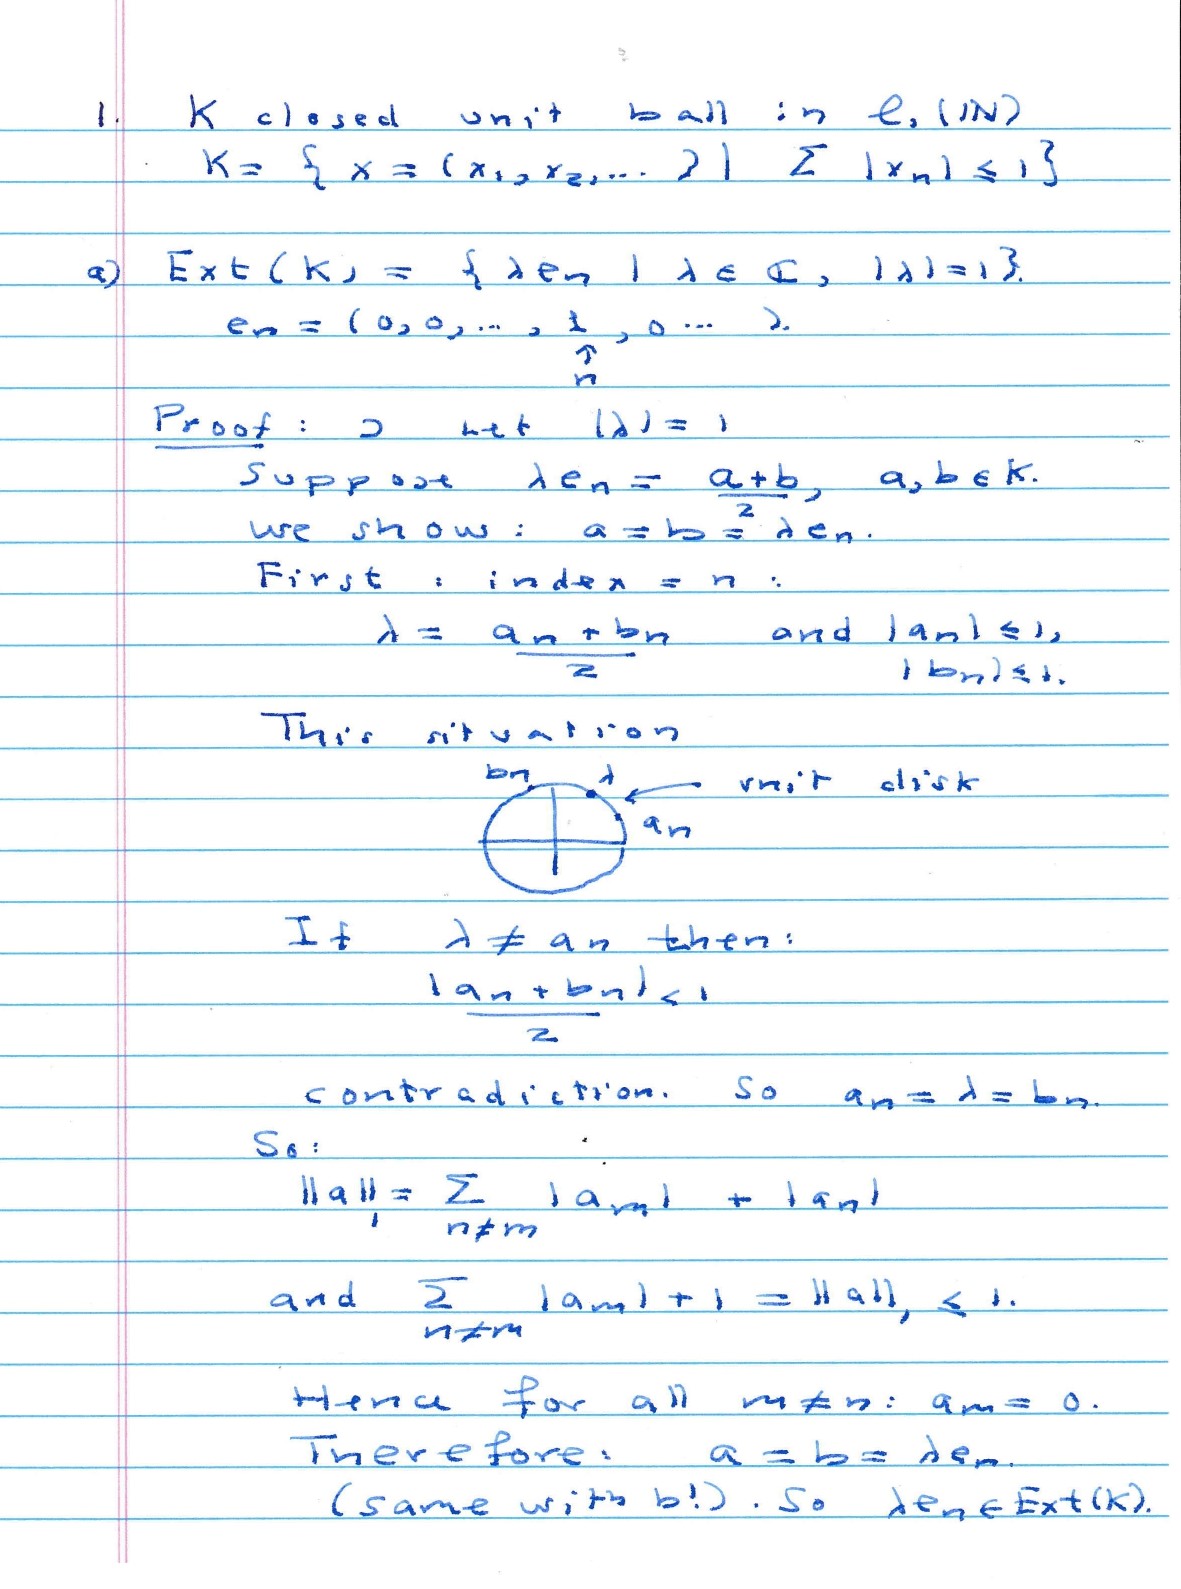 1. K closed unit ball in ℓ₁(ℕ)
K = { x = (x₁, x₂, ... ) | Σ |xₙ| ≤ 1 }
a) Ext(K) = { λeₙ | λ ∈ ℂ, |λ| = 1 }.
eₙ = (0, 0, ..., 1, 0 ... ).
↑
n
Proof : ⊃ Let |λ| = 1
Suppose λeₙ = (a+b)/2, a, b ∈ K.
we show : a = b = λeₙ.
First : index = n :
λ = (aₙ + bₙ)/2 and |aₙ| ≤ 1,
|bₙ| ≤ 1.
This situation
bₙ λ ← unit disk
aₙ
If λ ≠ aₙ then :
|aₙ + bₙ|/2 < 1
contradiction. So aₙ = λ = bₙ.
So :
||a||₁ = Σ_{n≠m} |aₘ| + |aₙ|
and Σ_{n≠m} |aₘ| + 1 = ||a||₁ ≤ 1.
Hence for all m ≠ n : aₘ = 0.
Therefore : a = b = λeₙ.
(same with b!). So λeₙ ∈ Ext(K).